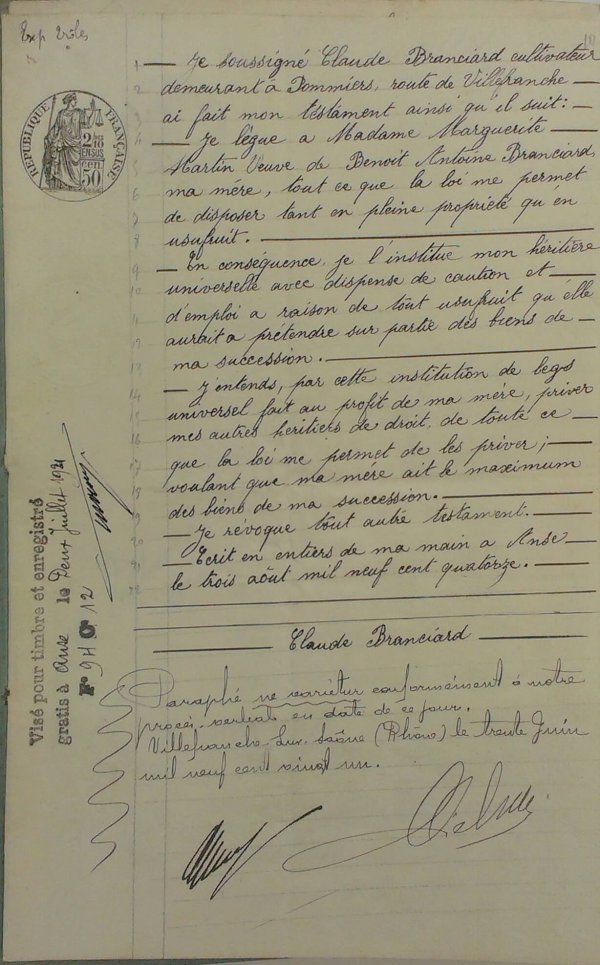 RÉPUBLIQUE FRANÇAISE
2/10 EN SUS
50
— Je soussigné Claude Branciard cultivateur
demeurant à Pommiers, route de Villefranche —
ai fait mon testament ainsi qu'il suit : —
— Je lègue a Madame Marguerite —
Martin Veuve de Benoit Antoine Branciard,
ma mère, tout ce que la loi me permet
de disposer tant en pleine propriété qu'en
usufruit. —
— En conséquence, je l'institue mon héritière
universelle avec dispense de caution et —
d'emploi a raison de tout usufruit qu'elle
aurait a prétendre sur partie des biens de —
ma succession. —
— J'entends, par cette institution de legs
universel fait au profit de ma mére, priver
mes autres héritiers de droit, de toute ce —
que la loi me permet de les priver ; —
voulant que ma mére ait le maximum
des biens de ma succession. —
— Je révoque tout autre testament. —
— Ecrit en entiers de ma main a Anse —
le trois août mil neuf cent quatorze. —
— Claude Branciard —
Paraphé ne varietur conformément à notre
procès-verbal en date de ce jour.
Villefranche sur Saône (Rhône) le trente Juin
mil neuf cent vingt un.
Visé pour timbre et enregistré
gratis à Anse le Deux Juillet 1921
F° 94 C. 12